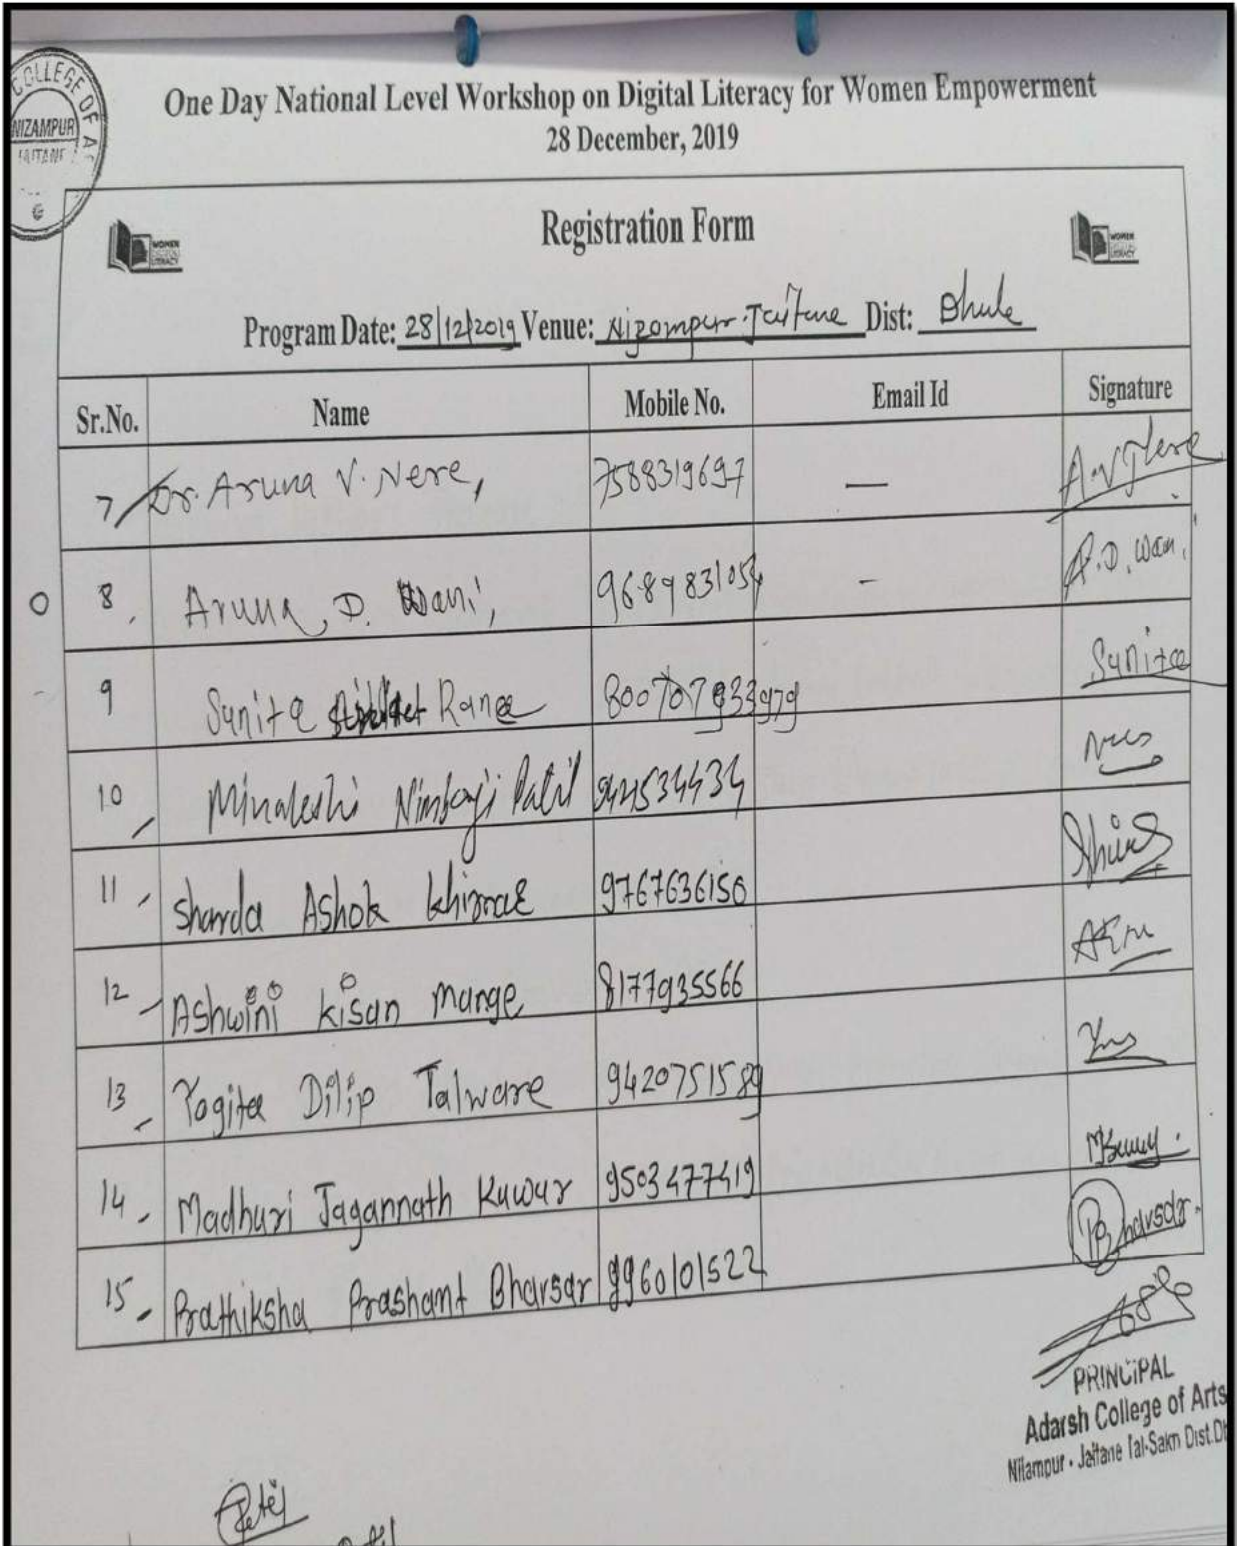 COLLEGE OF A
NIZAMPUR
JAITANE
One Day National Level Workshop on Digital Literacy for Women Empowerment
28 December, 2019
Registration Form
WOMEN
DIGITAL
LITERACY
WOMEN
DIGITAL
LITERACY
Program Date: 28/12/2019 Venue: Nizampur-Jaitane Dist: Dhule
Sr.No. Name Mobile No. Email Id Signature
7 Dr. Aruna V. Nere, 7588319697 —
8, Aruna D. Wani, 9689831054 - A.D. Wani
9 Sunita Rane Sunita
10, Minakshi Nimbaji Patil
11, Sharda Ashok Khirnar 9767636150
12 Ashwini Kisan Marge 8177935566
13, Yogita Dilip Talware 9420751589
14, Madhuri Jagannath Kuwar 9503477419
15, Prathiksha Prashant Bharsar 9960101522 Bhavsar
PRINCIPAL
Adarsh College of Arts
Nilampur - Jaitane Tal-Sakri Dist.Dh